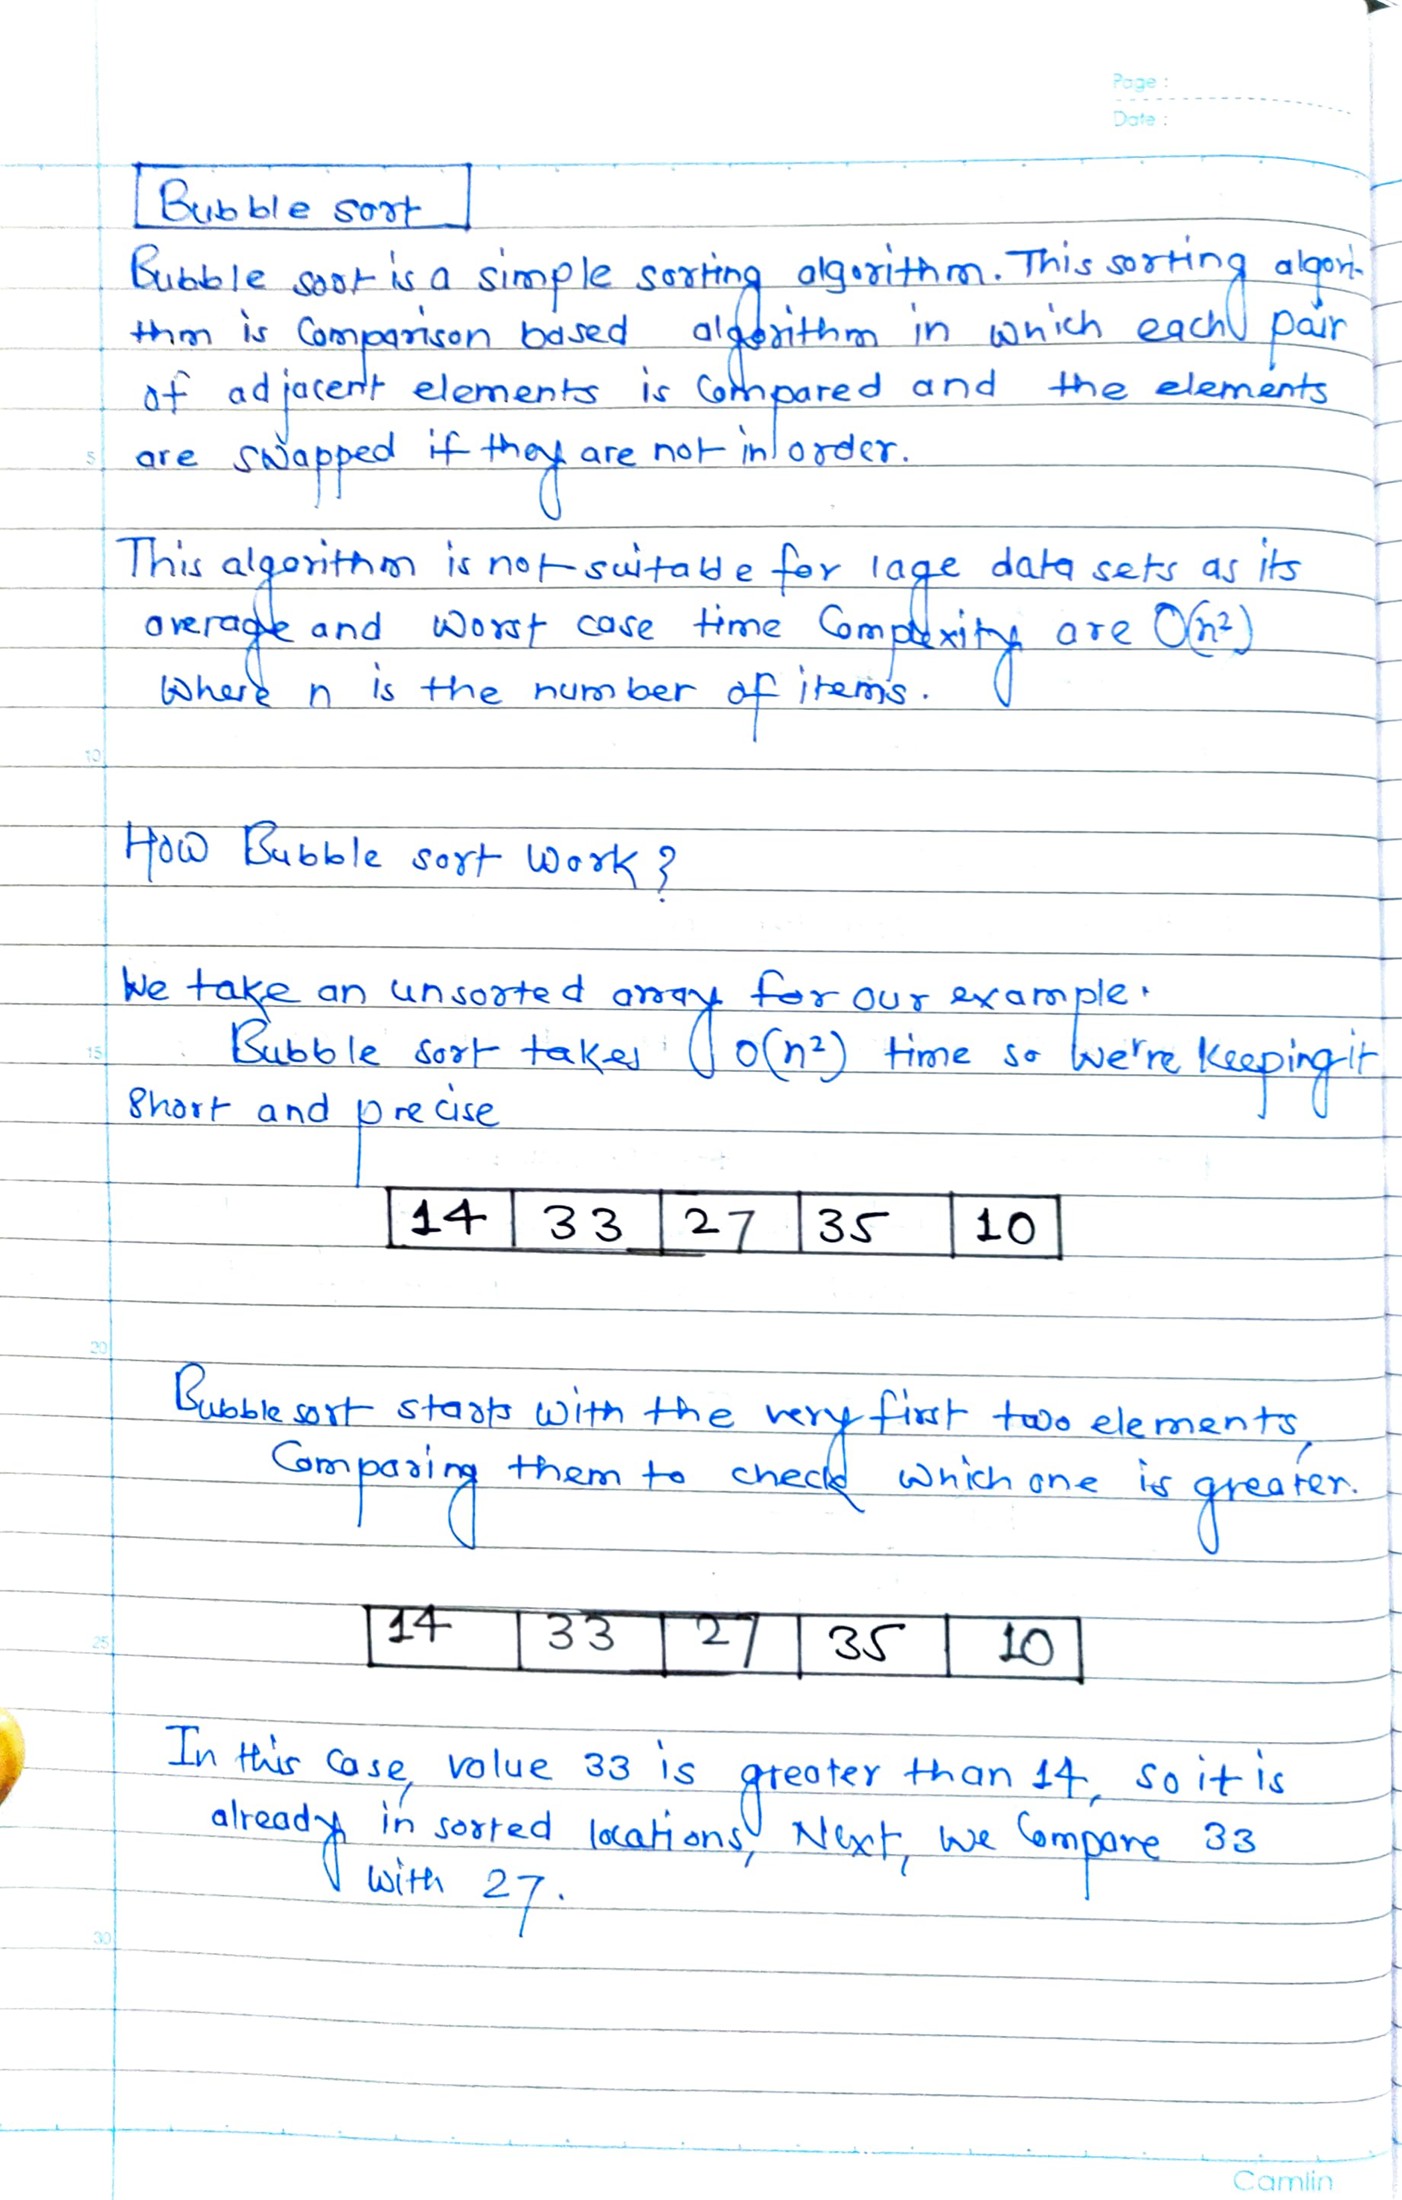 Page :
Date :
Bubble sort
Bubble sort is a simple sorting algorithm. This sorting algori-
thm is Comparison based algorithm in which each pair
of adjacent elements is Compared and the elements
5 are swapped if they are not in order.
This algorithm is not suitable for lage data sets as its
average and worst case time Complexity are O(n²)
where n is the number of items.
10
How Bubble sort work?
We take an unsorted array for our example.
15 Bubble sort takes O(n²) time so we're keeping it
short and precise
14 33 27 35 10
20
Bubble sort starts with the very first two elements,
Comparing them to check which one is greater.
25 14 33 27 35 10
In this case, value 33 is greater than 14, so it is
already in sorted locations, Next, we Compare 33
with 27.
30
Camlin